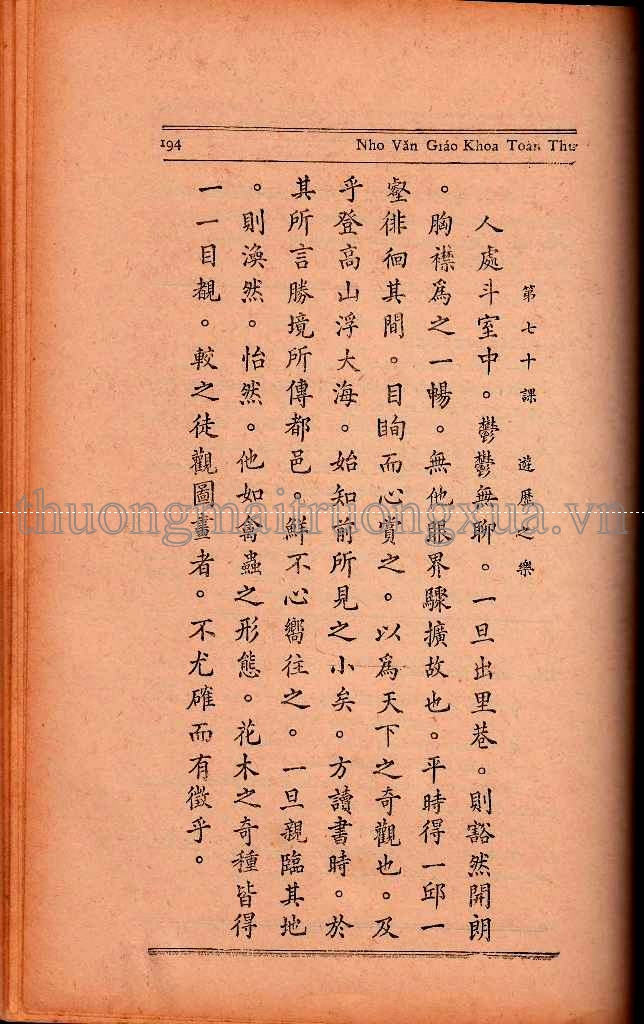 194 Nho Văn Giáo Khoa Toàn Thư
第七十課 遊歷之樂
人處斗室中。鬱鬱無聊。一旦出里巷。則豁然開朗
。胸襟爲之一暢。無他眼界驟擴故也。平時得一邱一
壑徘徊其間。目眴而心賞之。以爲天下之奇觀也。及
乎登高山浮大海。始知前所見之小矣。方讀書時。於
其所言勝境所傳都邑。鮮不心嚮往之。一旦親臨其地
。則渙然。怡然。他如禽蟲之形態。花木之奇種皆得
一一目覩。較之徒觀圖畫者。不尤確而有徵乎。
thuongmaitruongxua.vn